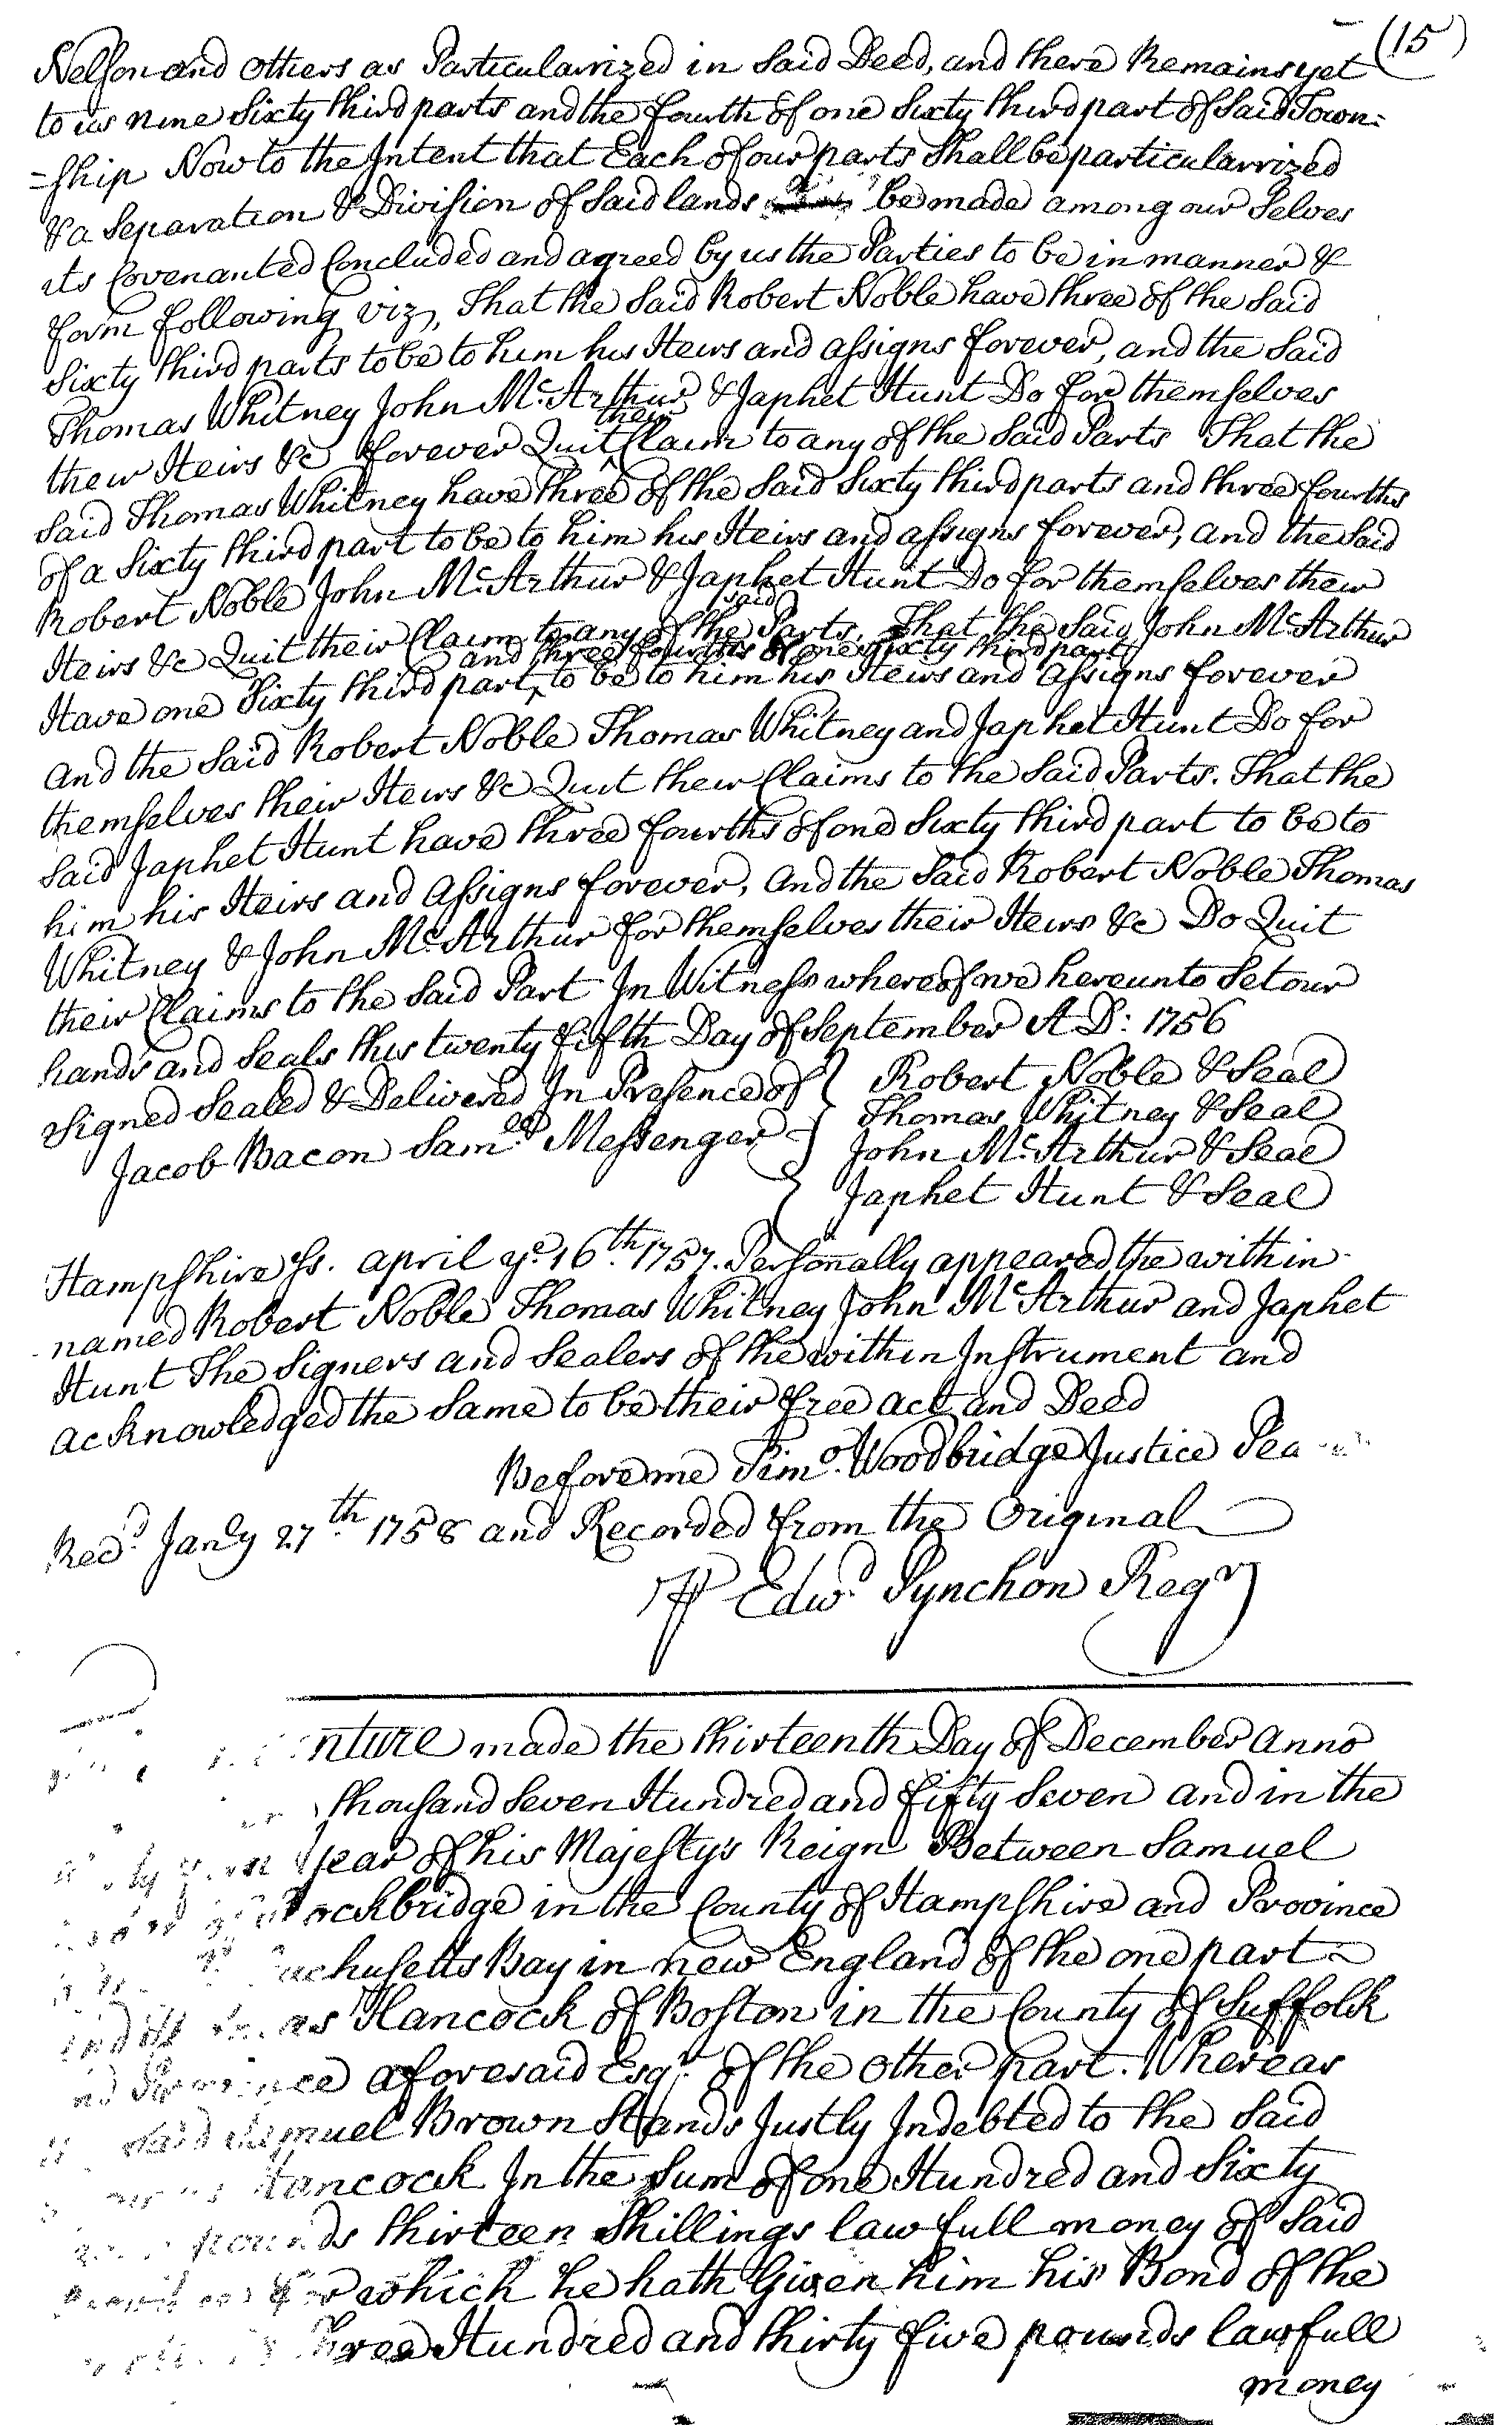 (15)
Nelson and others as Particularrized in Said Deed, and there Remains yet
to us nine Sixty third parts and the fourth of one Sixty third part of Said Town=
=ship Now to the Intent that Each of our parts Shall be particularrized
& a Separation & Division of Said lands be made among our Selves
its Covenanted Concluded and agreed by us the Parties to be in manner &
form following viz, That the Said Robert Noble have three of the Said
Sixty third parts to be to him his Heirs and assigns forever, and the Said
Thomas Whitney John Mc.Arthur & Japhet Hunt Do for themselves
their Heirs &c forever Quit their Claim to any of the Said Parts That the
Said Thomas Whitney have three of the Said Sixty third parts and three fourths
of a Sixty third part to be to him his Heirs and assigns forever, and the Said
Robert Noble John Mc.Arthur & Japhet Hunt Do for themselves their
Heirs &c Quit their Claim to any of the said Parts. That the Said John Mc.Arthur
Have one Sixty third part and three fourths of one Sixty third part to be to him his Heirs and assigns forever
and the Said Robert Noble Thomas Whitney and Japhet Hunt Do for
themselves their Heirs &c Quit their Claims to the Said Parts. That the
Said Japhet Hunt have three fourths of one Sixty third part to be to
him his Heirs and assigns forever, and the Said Robert Noble Thomas
Whitney & John Mc.Arthur for themselves their Heirs &c Do Quit
their Claims to the Said Part In Witness whereof we hereunto Set our
hands and Seals this twenty fifth Day of September A D: 1756
Signed Sealed & Delivered In Presence of } Robert Noble & Seal
Thomas Whitney & Seal
Jacob Bacon Saml. Messenger } John Mc.Arthur & Seal
Japhet Hunt & Seal
Hampshire Ss. april ye. 16th. 1757. Personally appeared the within
named Robert Noble Thomas Whitney John Mc.Arthur and Japhet
Hunt The Signers and Sealers of the within Instrument and
acknowledged the Same to be their free act and Deed
Before me Timo. Woodbridge Justice Pea
Recd. Jany 27th. 1758 and Recorded from the Original
⅌ Edwd. Pynchon Regr
nture made the thirteenth Day of December anno
thousand Seven Hundred and fifty Seven and in the
year of his Majesty's Reign Between Samuel
ockbridge in the County of Hampshire and Province
achusetts Bay in new England of the one part
as Hancock of Boston in the County of Suffolk
nd Province aforesaid Esqr. of the other part. Whereas
Said Samuel Brown Stands Justly Indebted to the Said
Hancock In the Sum of one Hundred and Sixty
pounds thirteen Shillings lawfull money of Said
for which he hath Given him his Bond of the
three Hundred and thirty five pounds lawfull
money